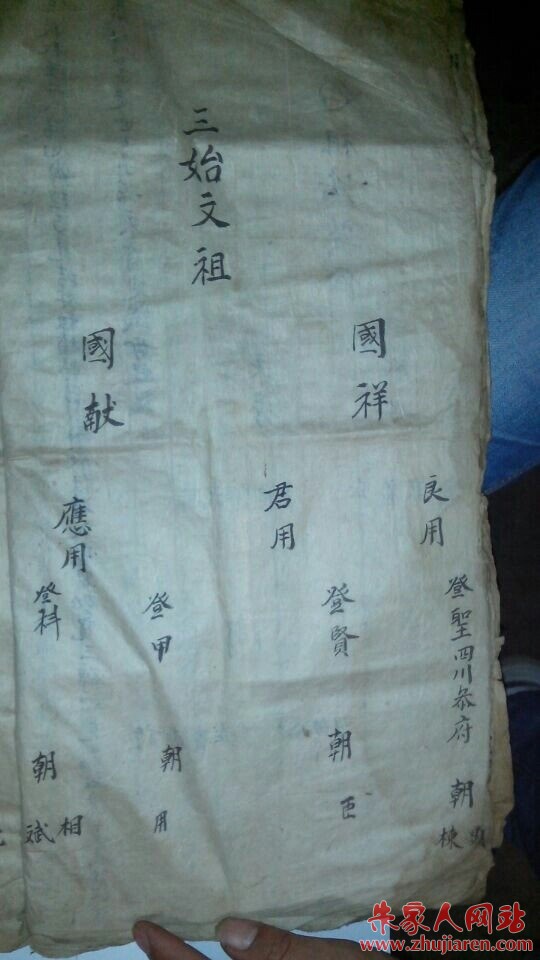 三始文祖
國祥
國献
良用
君用
應用
登聖四川叅府
登賢
登甲
登科
朝
棟
朝
臣
朝
用
朝
相
斌
朱家人网站
www.zhujiaren.com